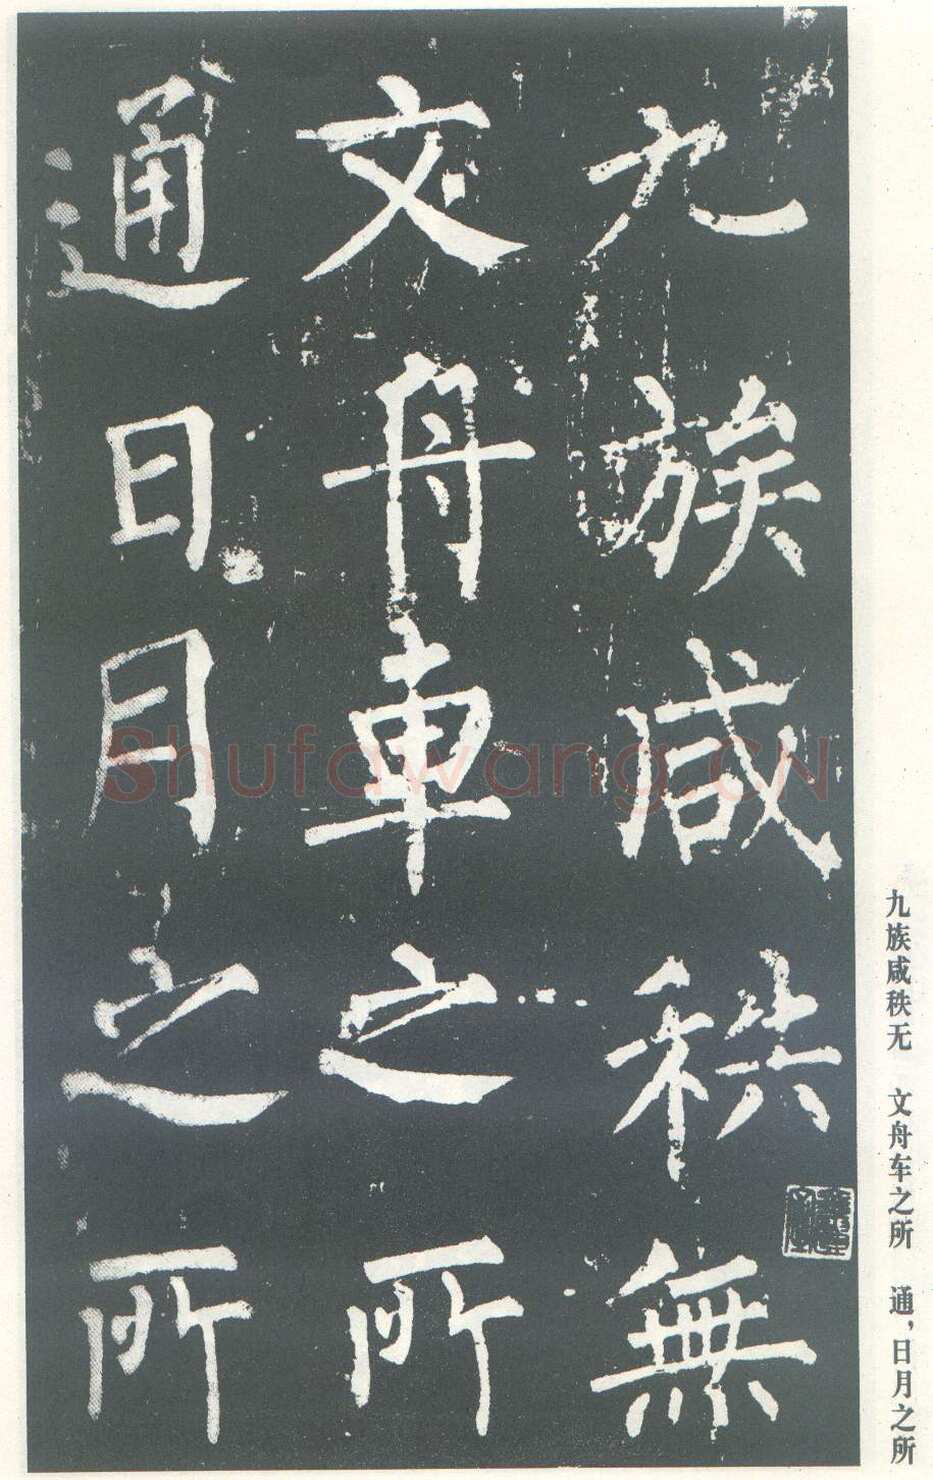 九族咸秩無
文舟車之所
通日月之所
九族咸秩无 文舟车之所 通，日月之所
Shufawang.CN